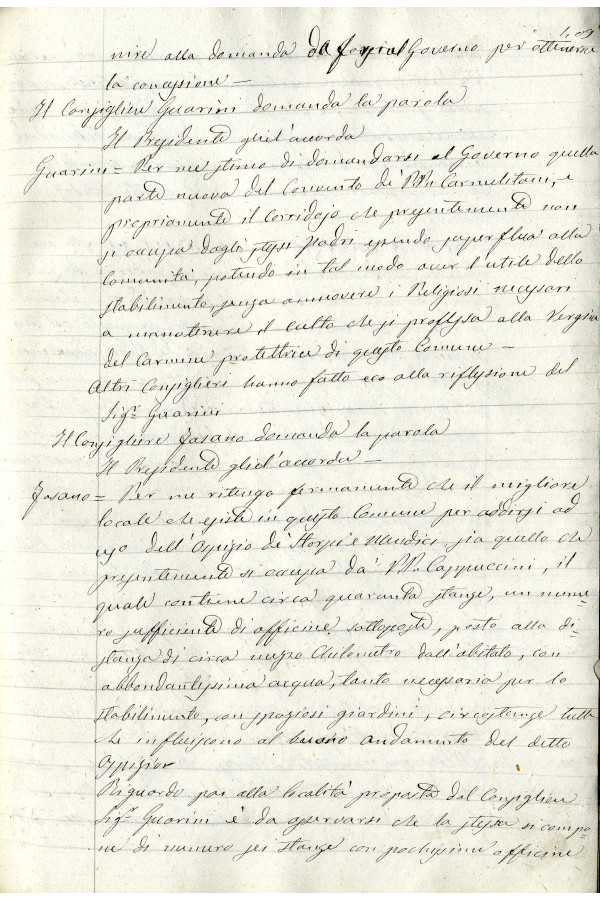 109
nire alla domanda del Governo per ottenersi
la concessione —
Il Consigliere Guarini domanda la parola
Il Presidente gliel'accorda
Guarini = Per me stimo di domandarsi al Governo quella
parte nuova del Convento de' PP. Carmelitani, e
propriamente il Corridojo che presentemente non
si occupa dagli stessi Padri essendo superflua alla
Comunità, potendo in tal modo aver l'utile dello
stabilimento, senza ammovere i Religiosi necessari
a manotenere il culto che si professa alla Vergine
del Carmine protettrice di questo Comune —
Altri Consiglieri hanno fatto eco alla riflessione del
Sigr. Guarini
Il Consigliere Fasano domanda la parola
Il Presidente gliel'accorda —
Fasano = Per me ritengo fermamente che il migliore
locale che esiste in questo Comune per addirsi ad
uso dell'Ospizio de' Storpi e Mendici sia quello che
presentemente si occupa da' PP. Cappuccini, il
quale contiene circa quaranta stanze, un nume-
ro sufficiente di officine sottoposte, posto alla di-
stanza di circa mezzo Chilometro dall'abitato, con
abbondantissima acqua, tanto necessaria per lo
stabilimento, con spaziosi giardini, circostanze tutte
che influiscono al buono andamento del detto
Ospizio
Riguardo poi alla località proposta dal Consigliere
Sigr. Guarini è da osservarsi che la stessa si compo-
ne di numero sei stanze con pochissime officine